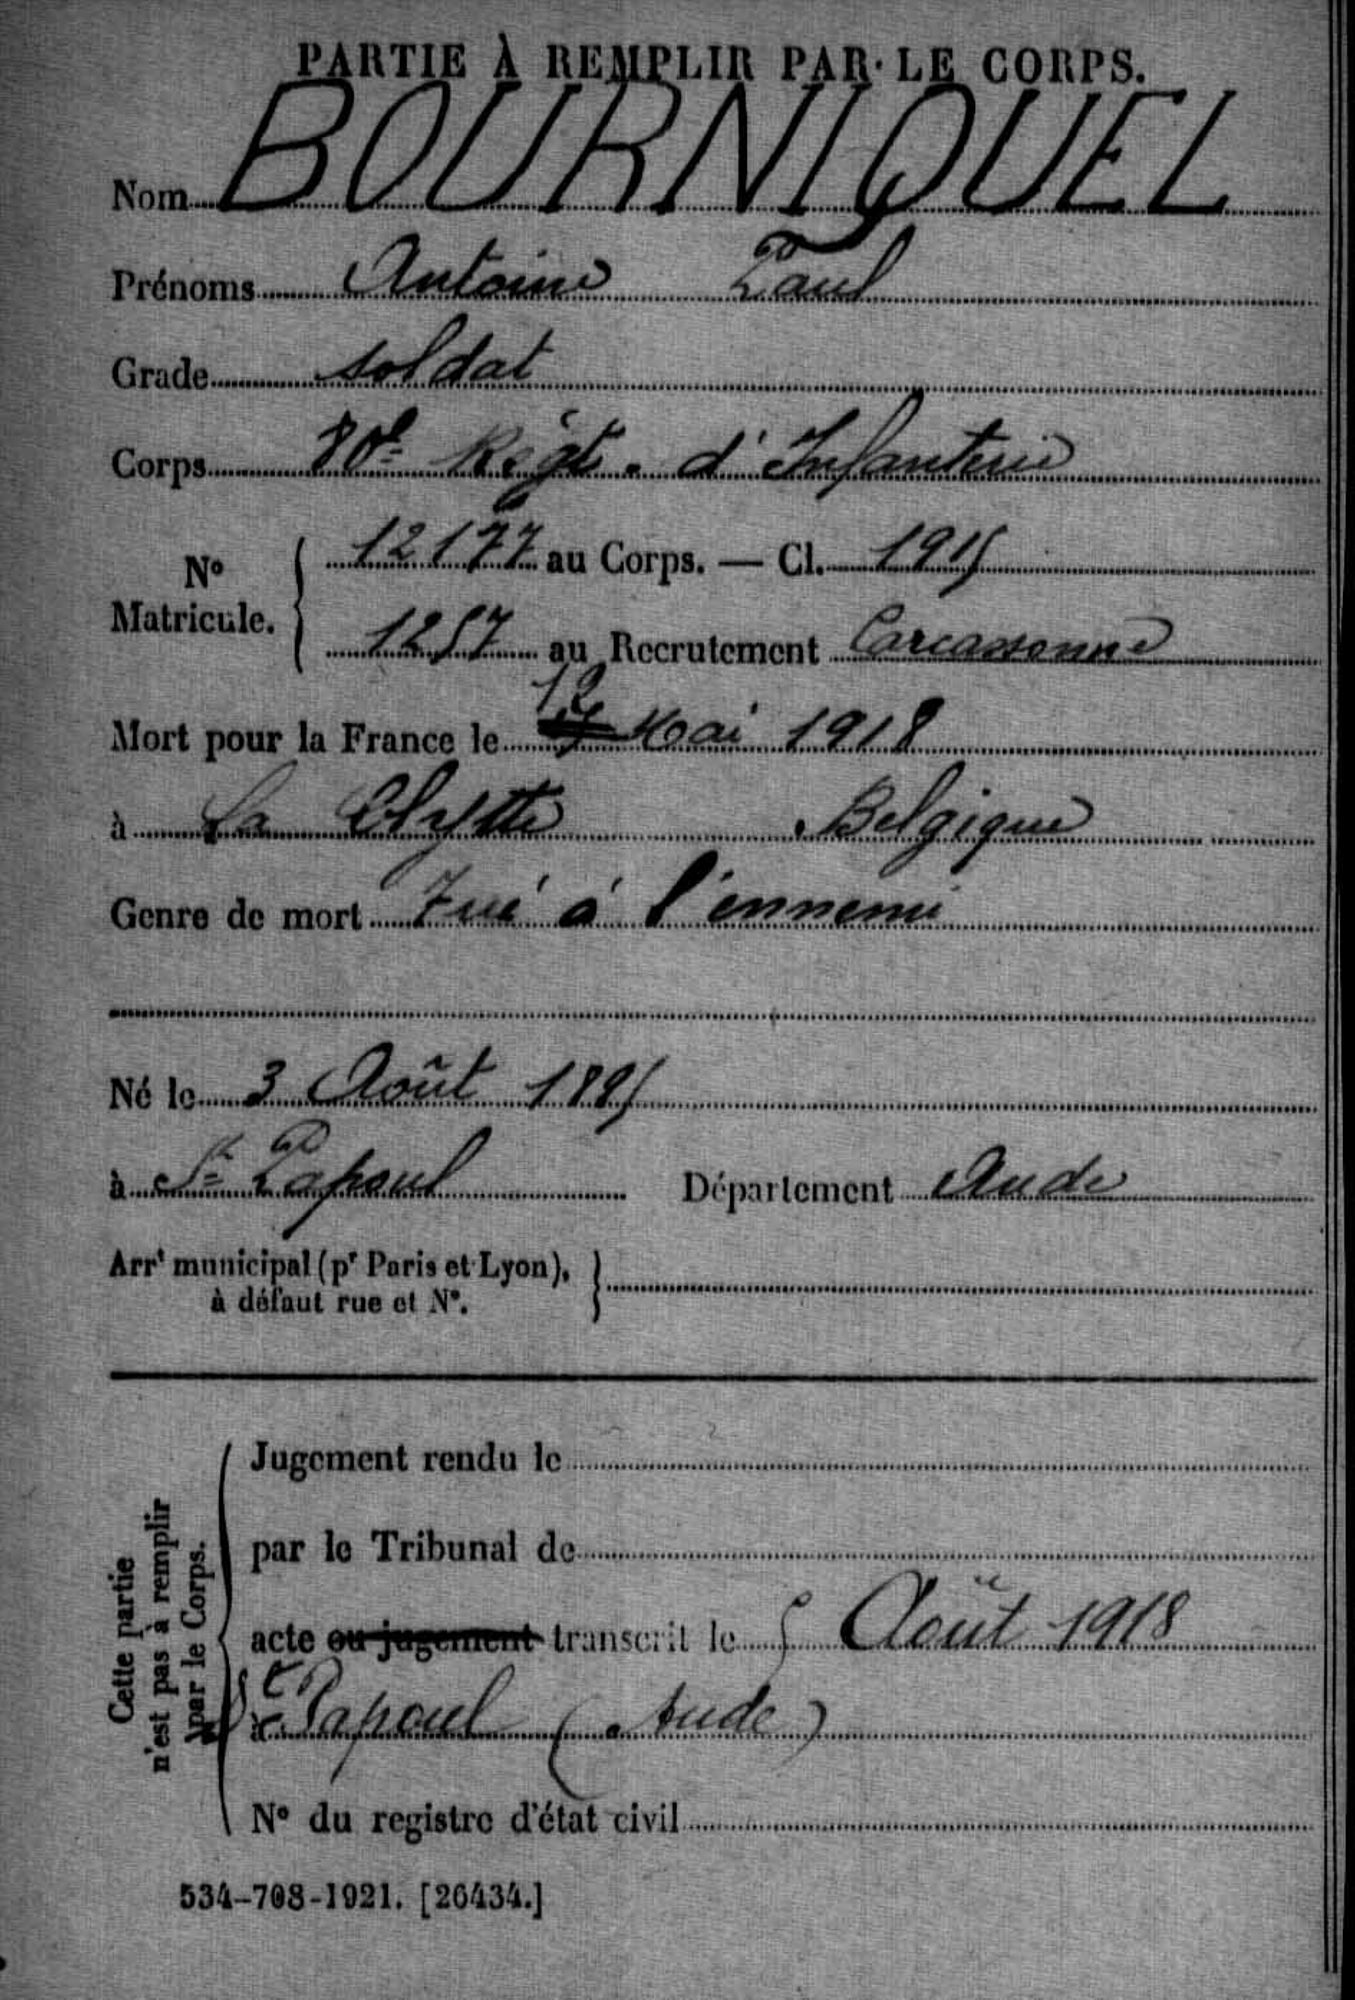 PARTIE À REMPLIR PAR LE CORPS.
Nom BOURNIQUEL
Prénoms Antoine Paul
Grade soldat
Corps 80e Régt. d'Infanterie
No Matricule. { 12177 au Corps. — Cl. 1915
1257 au Recrutement Carcassonne
12
Mort pour la France le Mai 1918
à La Clytte Belgique
Genre de mort Tué à l'ennemi
Né le 3 Août 1895
à St Papoul Département Aude
Arrt municipal (pr Paris et Lyon), }
à défaut rue et No.
Cette partie
n'est pas à remplir
par le Corps.
Jugement rendu le
par le Tribunal de
acte ou jugement transcrit le 5 Août 1918
à St Papoul (Aude)
No du registre d'état civil
534-708-1921. [26434.]